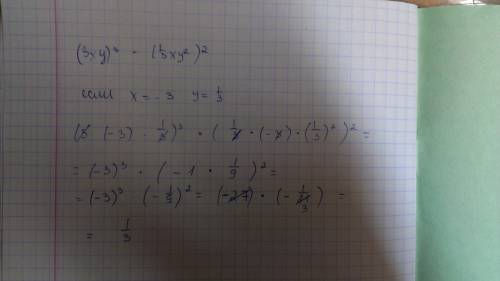 (3xy)³ · (⅓xy²)²
если x = -3 y = ⅓
(3̸ · (-3) · 1/3̸)³ · (1/3̸ · (-3̸) · (⅓)²)² =
= (-3)³ · (-1 · 1/9)² =
= (-3)³ · (-1/9)² = (-27) · (- 1/81 3) =
= 1/3